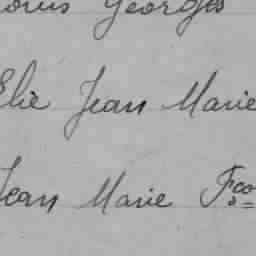 Louis Georges
Elie Jean Marie
Jean Marie Fco